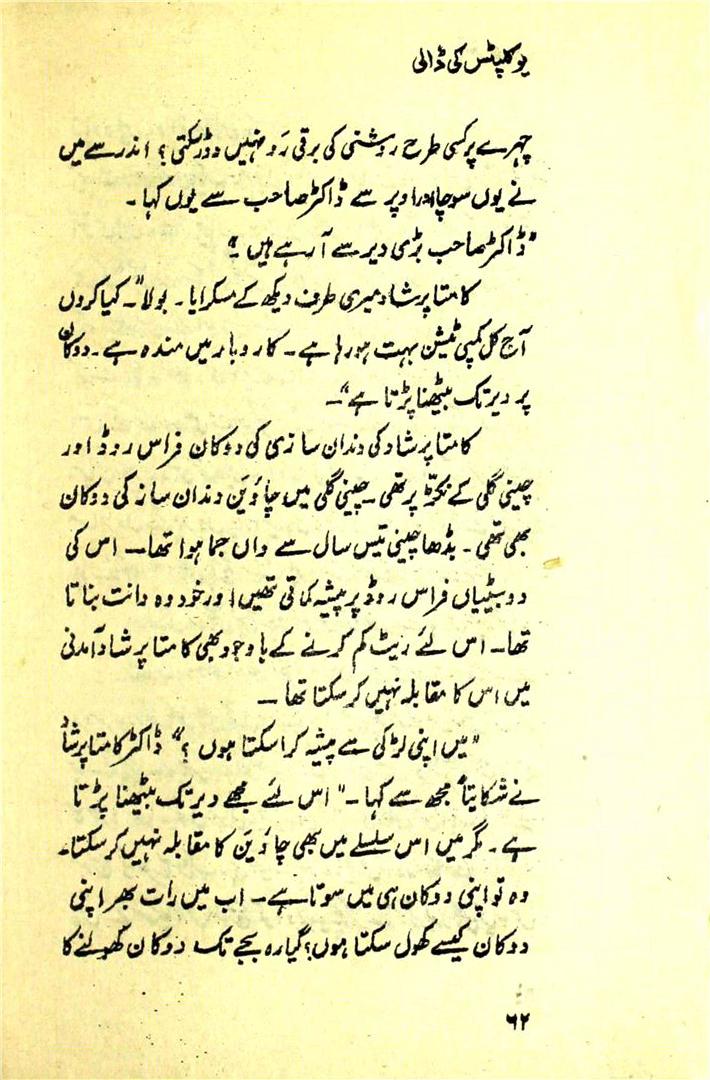 یوکلپٹس کی ڈالی
چہرے پر کسی طرح روشنی کی برقی رَو نہیں دوڑ سکتی؟ اندر سے میں
نے یوں سوچا اور اوپر سے ڈاکٹر صاحب سے یوں کہا۔
"ڈاکٹر صاحب بڑی دیر سے آ رہے ہیں۔"
کامتا پرشاد میری طرف دیکھ کے مسکرایا۔ بولا"۔ کیا کروں
آج کل کمپی ٹیشن بہت ہو رہا ہے۔ کاروبار میں مندہ ہے۔ دوکان
پر دیر تک بیٹھنا پڑتا ہے"۔
کامتا پرشاد کی دندان سازی کی دوکان فراس روڈ اور
چینی گلی کے نکڑ پر تھی۔ چینی گلی میں چاؤیَن دندان ساز کی دوکان
بھی تھی۔ بڈھا چینی تیس سال سے واں جما ہوا تھا۔ اس کی
دو بیٹیاں فراس روڈ پر پیشہ کماتی تھیں اور خود وہ دانت بناتا
تھا۔ اس لئے ریٹ کم کرنے کے باوجود بھی کامتا پرشاد آمدنی
میں اس کا مقابلہ نہیں کر سکتا تھا۔
"میں اپنی لڑکی سے پیشہ کرا سکتا ہوں؟" ڈاکٹر کامتا پرشاد
نے شکایتاً مجھ سے کہا۔" اس لئے مجھے دیر تک بیٹھنا پڑتا
ہے۔ مگر میں اس سلسلے میں بھی چاؤیَن کا مقابلہ نہیں کر سکتا۔
وہ تو اپنی دوکان ہی میں سوتا ہے۔ اب میں رات بھر اپنی
دوکان کیسے کھول سکتا ہوں؟ گیارہ بجے تک دوکان کھولنے کا
۶۲